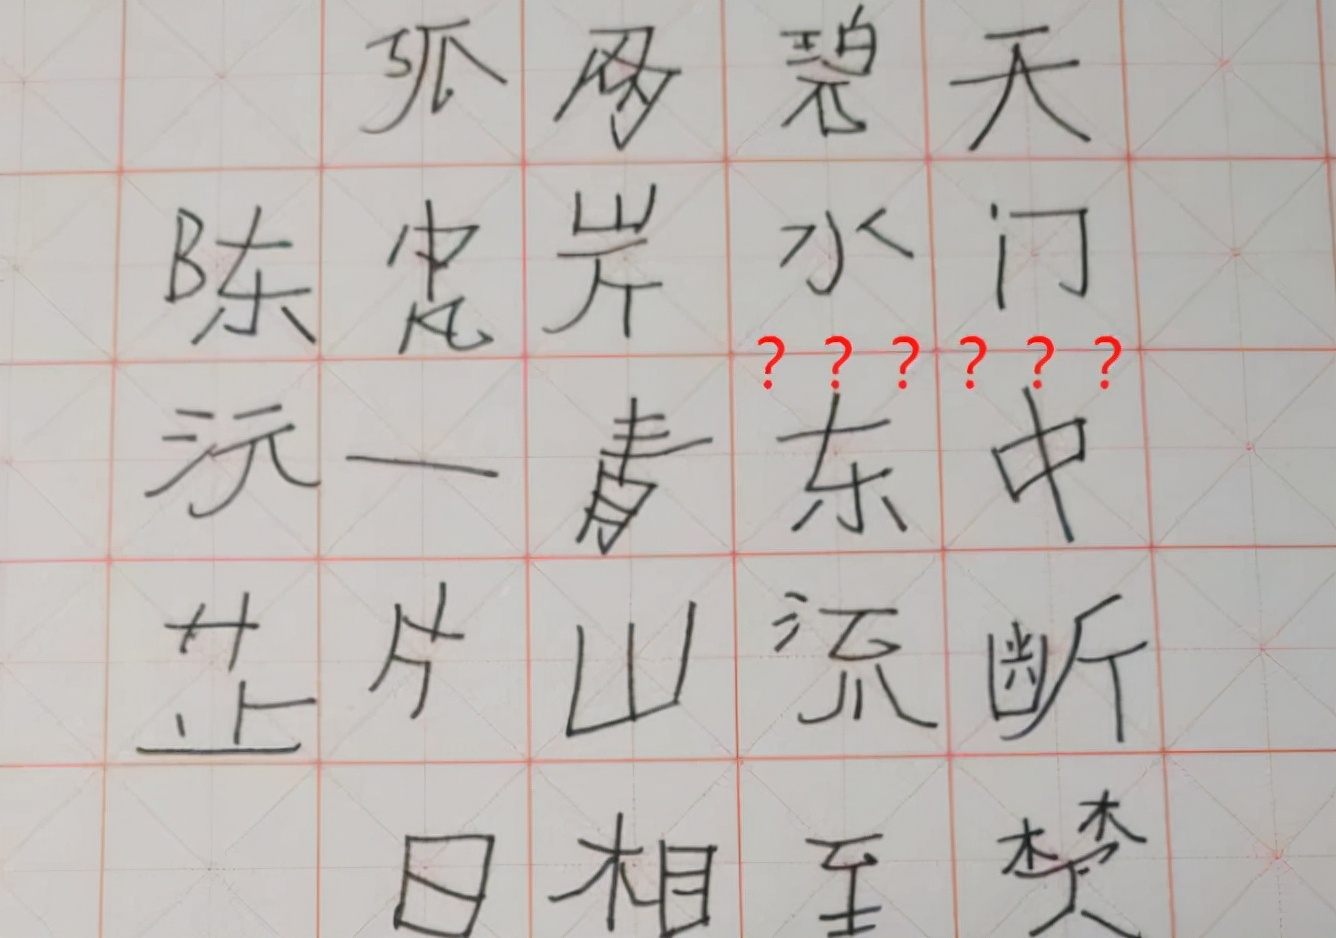 天门中断楚
碧水东流至
两岸青山相
孤帆一片日
陈沅芷
? ? ? ? ? ?